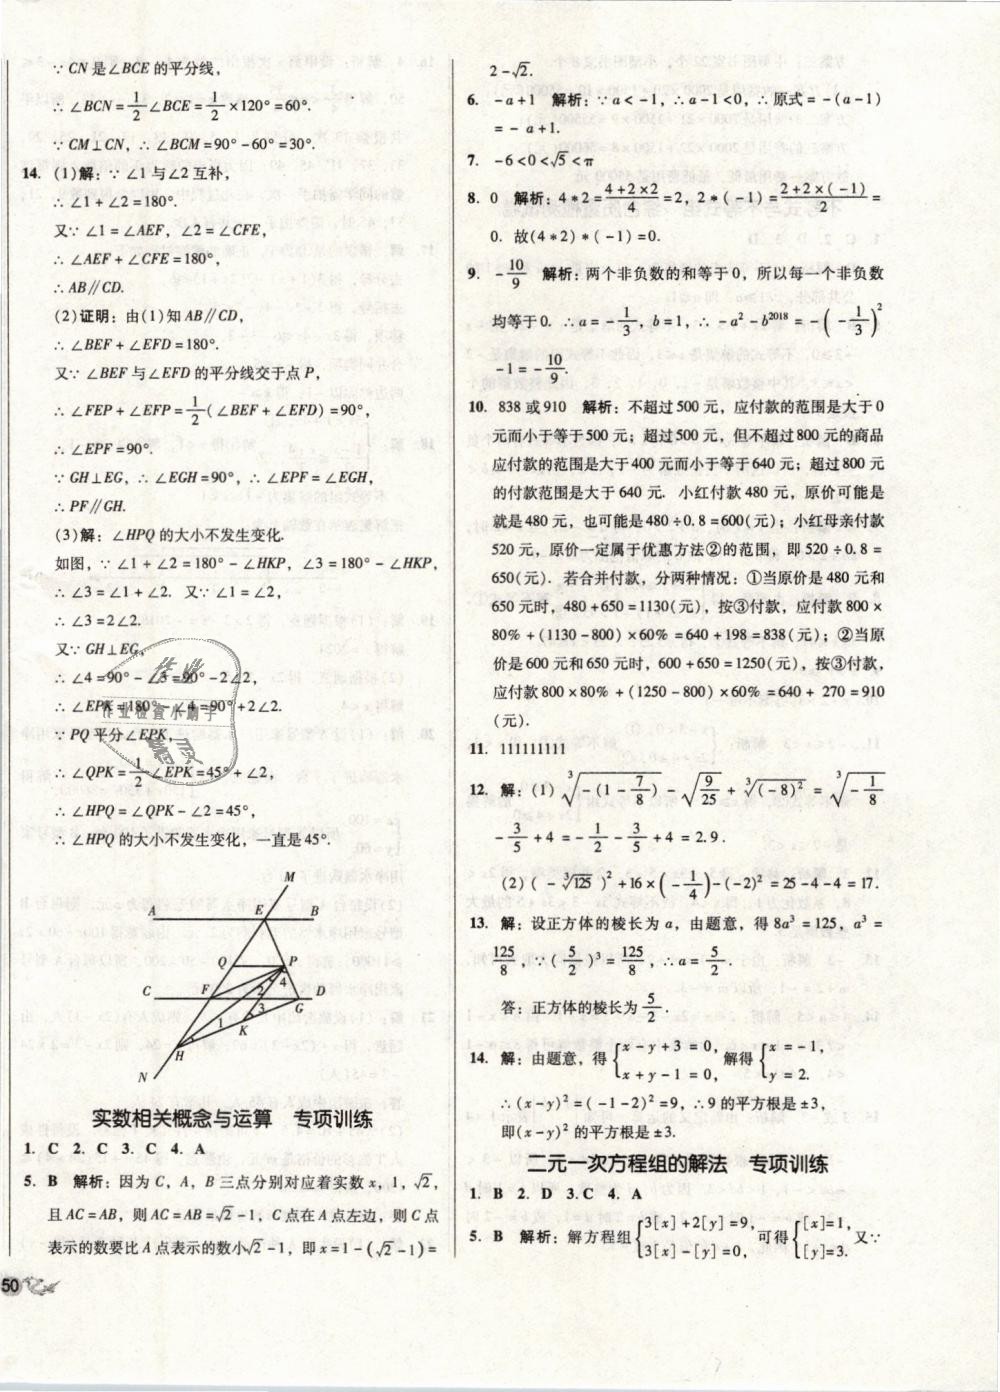 ∵ CN 是∠BCE 的平分线，
∴ ∠BCN = 1/2 ∠BCE = 1/2 × 120° = 60°.
∵ CM⊥CN，∴ ∠BCM = 90° - 60° = 30°.
14. (1)解：∵ ∠1 与∠2 互补，
∴ ∠1 + ∠2 = 180°.
又∵ ∠1 = ∠AEF，∠2 = ∠CFE，
∴ ∠AEF + ∠CFE = 180°，
∴ AB∥CD.
(2)证明：由(1)知 AB∥CD，
∴ ∠BEF + ∠EFD = 180°.
又∵ ∠BEF 与∠EFD 的平分线交于点 P，
∴ ∠FEP + ∠EFP = 1/2 ( ∠BEF + ∠EFD) = 90°，
∴ ∠EPF = 90°.
∵ GH⊥EG，∴ ∠EGH = 90°，∴ ∠EPF = ∠EGH，
∴ PF∥GH.
(3)解：∠HPQ 的大小不发生变化.
如图，∵ ∠1 + ∠2 = 180° - ∠HKP，∠3 = 180° - ∠HKP，
∴ ∠3 = ∠1 + ∠2. 又∵ ∠1 = ∠2，
∴ ∠3 = 2∠2.
又∵ GH⊥EG，
∴ ∠4 = 90° - ∠3 = 90° - 2∠2，
∴ ∠EPK = 180° - ∠4 = 90° + 2∠2.
∵ PQ 平分∠EPK，
∴ ∠QPK = 1/2 ∠EPK = 45° + ∠2，
∴ ∠HPQ = ∠QPK - ∠2 = 45°，
∴ ∠HPQ 的大小不发生变化，一直是 45°.
作业
作业检查小助手
M
A E B
Q P
4
C F 2 G D
3
1 K
H
N
实数相关概念与运算 专项训练
1. C 2. C 3. C 4. A
5. B 解析：因为 C，A，B 三点分别对应着实数 x，1，√2，
且 AC = AB，则 AC = AB = √2 - 1，C 点在 A 点左边，则 C 点
表示的数要比 A 点表示的数小√2 - 1，即 x = 1 - (√2 - 1) =
50
2 - √2.
6. -a + 1 解析：∵ a < -1，∴ a - 1 < 0，∴ 原式 = -(a - 1)
= -a + 1.
7. -6 < 0 < √5 < π
8. 0 解析：4 * 2 = (4 + 2 × 2)/4 = 2，2 * ( -1) = (2 + 2 × ( -1))/2 =
0. 故(4 * 2) * ( -1) = 0.
9. -10/9 解析：两个非负数的和等于 0，所以每一个非负数
均等于 0. ∴ a = -1/3，b = 1，∴ -a² - b²⁰¹⁸ = -( -1/3 )²
-1 = -10/9.
10. 838 或 910 解析：不超过 500 元，应付款的范围是大于 0
元而小于等于 500 元；超过 500 元，但不超过 800 元的商品
应付款的范围是大于 400 元而小于等于 640 元；超过 800 元
的付款范围是大于 640 元. 小红付款 480 元，原价可能是
就是 480 元，也可能是 480 ÷ 0. 8 = 600(元)；小红母亲付款
520 元，原价一定属于优惠方法②的范围，即 520 ÷ 0. 8 =
650(元). 若合并付款，分两种情况：①当原价是 480 元和
650 元时，480 + 650 = 1130(元)，按③付款，应付款 800 ×
80% + (1130 - 800) × 60% = 640 + 198 = 838(元)；②当原
价是 600 元和 650 元时，600 + 650 = 1250(元)，按③付款，
应付款 800 × 80% + (1250 - 800) × 60% = 640 + 270 = 910
(元).
11. 111111111
12. 解：(1) ³√(-(1 - 7/8)) - √(9/25) + ³√((-8)²) = ³√(-1/8)
-3/5 + 4 = -1/2 - 3/5 + 4 = 2. 9.
(2) ( -³√125 )² + 16 × ( -1/4 ) - ( -2)² = 25 - 4 - 4 = 17.
13. 解：设正方体的棱长为 a，由题意，得 8a³ = 125，a³ =
125/8，∵ ( 5/2 )³ = 125/8，∴ a = 5/2.
答：正方体的棱长为 5/2.
14. 解：由题意，得 { x - y + 3 = 0，x + y - 1 = 0， 解得 { x = -1，y = 2.
∴ (x - y)² = ( -1 - 2)² = 9，∴ 9 的平方根是 ±3，
即(x - y)² 的平方根是 ±3.
二元一次方程组的解法 专项训练
1. B 2. D 3. C 4. A
5. B 解析：解方程组 { 3[x] + 2[y] = 9，3[x] - [y] = 0， 可得 { [x] = 1，[y] = 3. 又∵